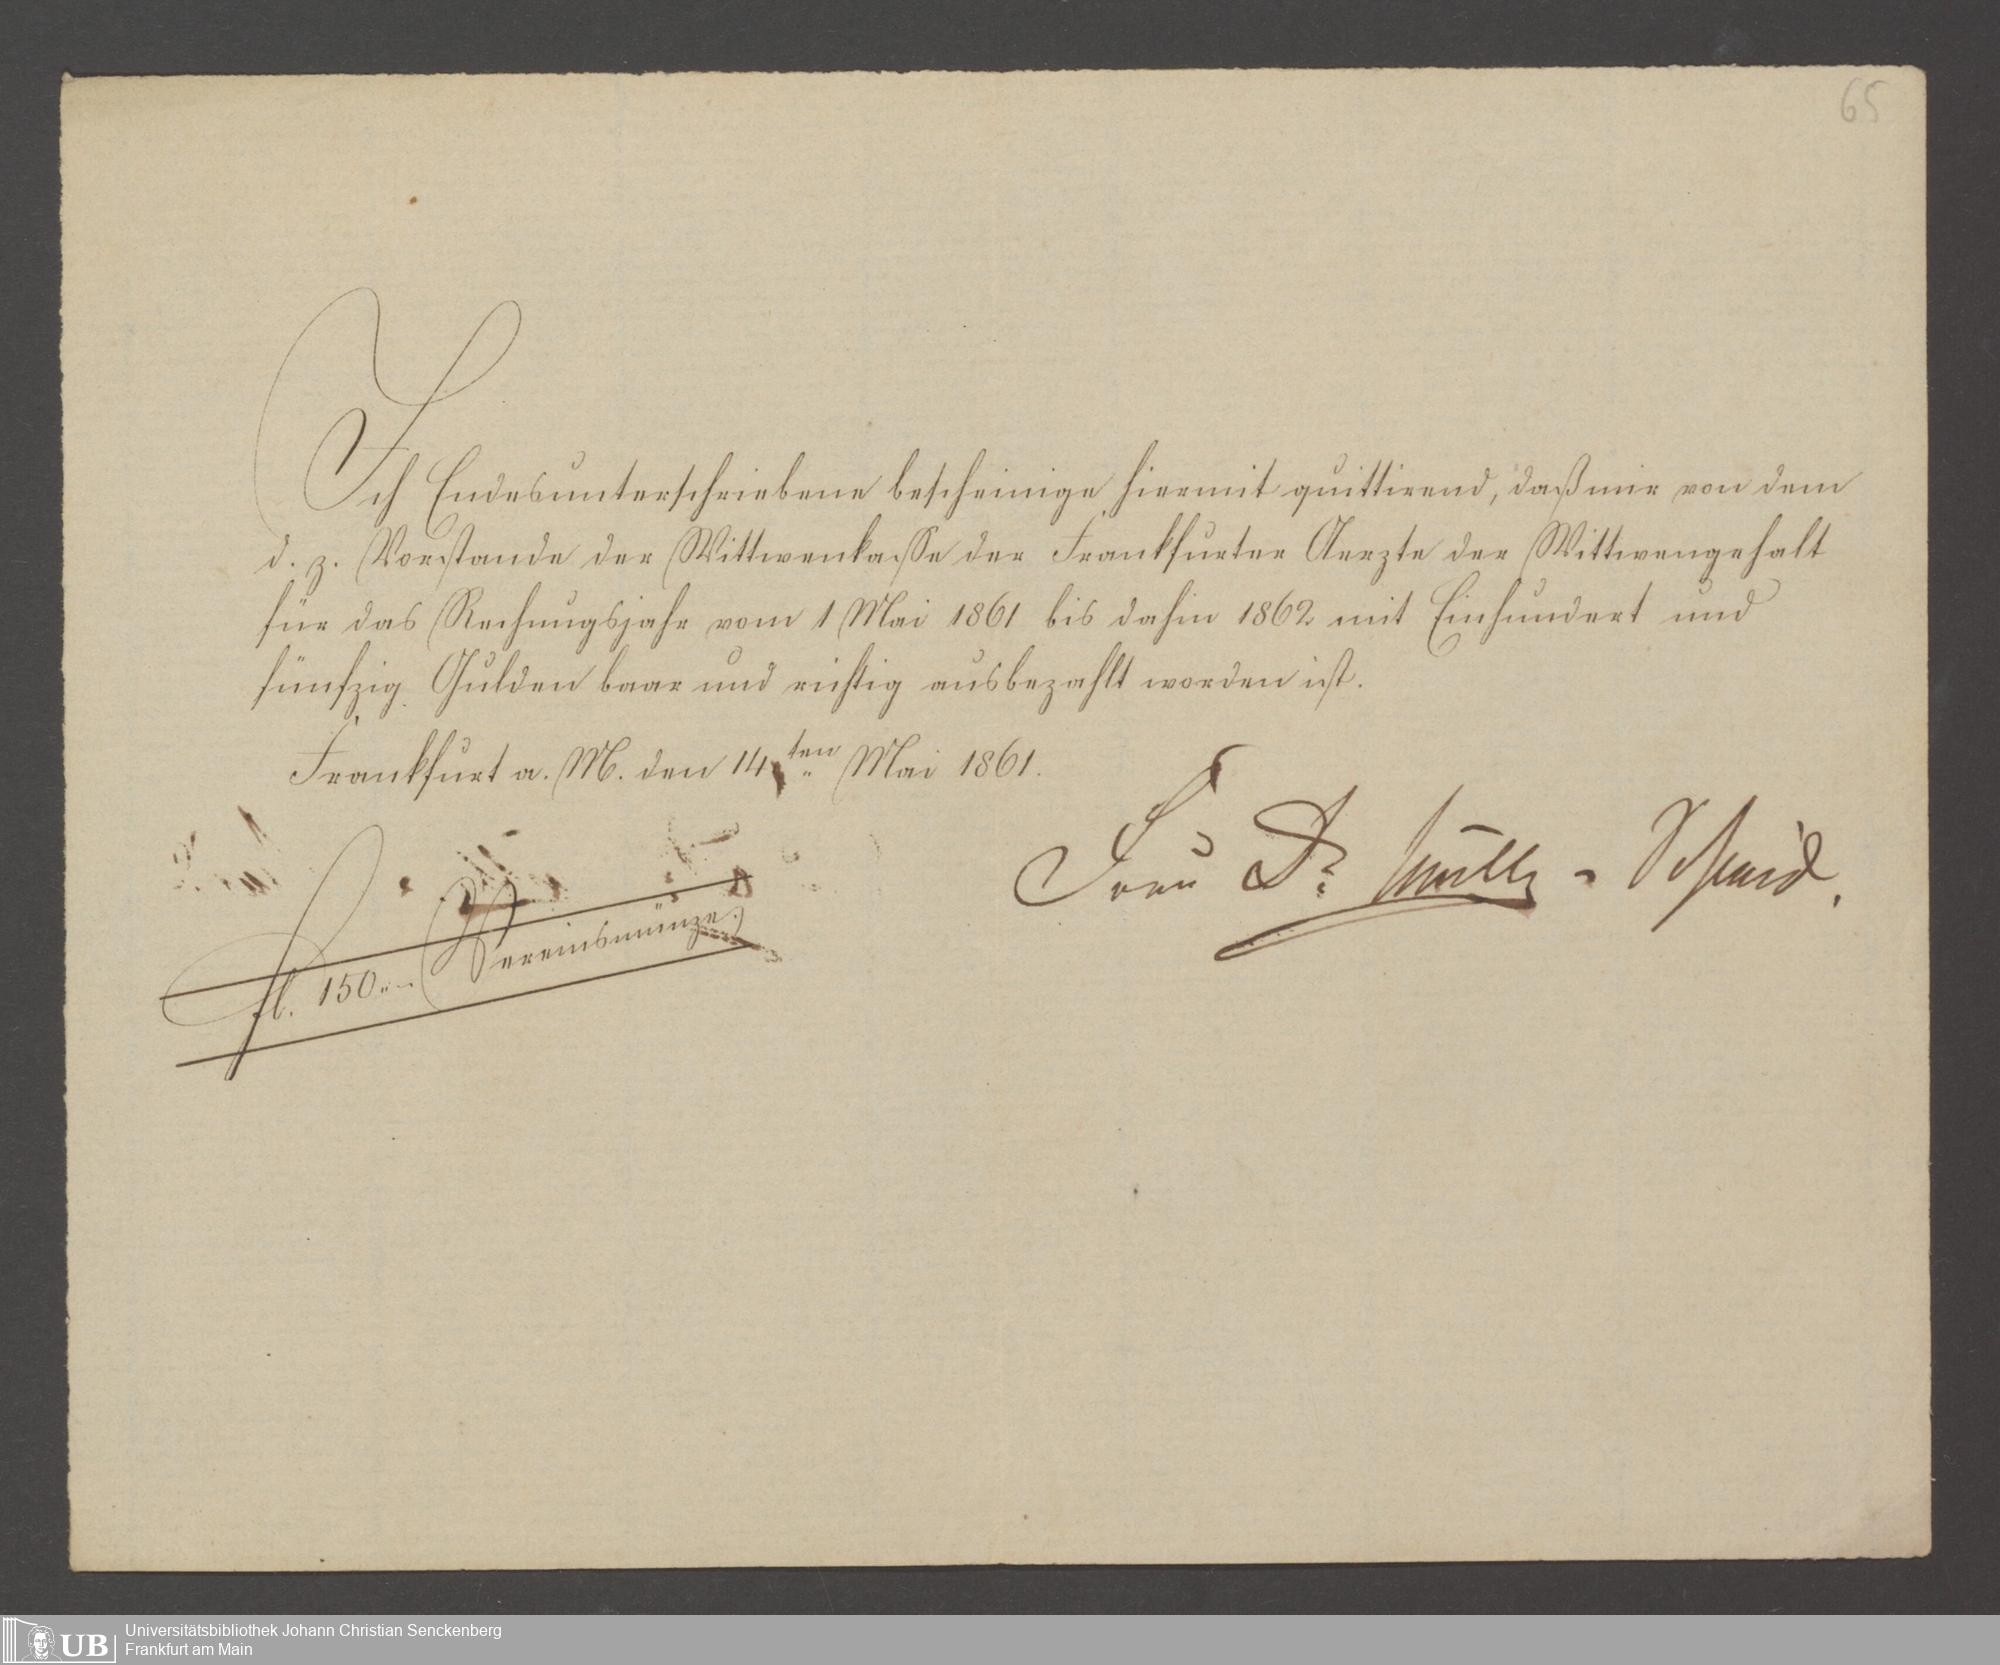 65
Ich Endesunterschriebene bescheinige hiermit quittirend, daß mir von dem
d. z. Vorstande der Wittwenkasse der Frankfurter Aerzte der Wittwengehalt
für das Rechnungsjahr vom 1 Mai 1861 bis dahin 1862 mit Einhundert und
fünfzig Gulden baar und richtig ausbezahlt worden ist.
Frankfurt a. M. den 14ten Mai 1861.
Frau Dr Müller - Schmid.
fl. 150.- Vereinsmünze.
UB
Universitätsbibliothek Johann Christian Senckenberg
Frankfurt am Main